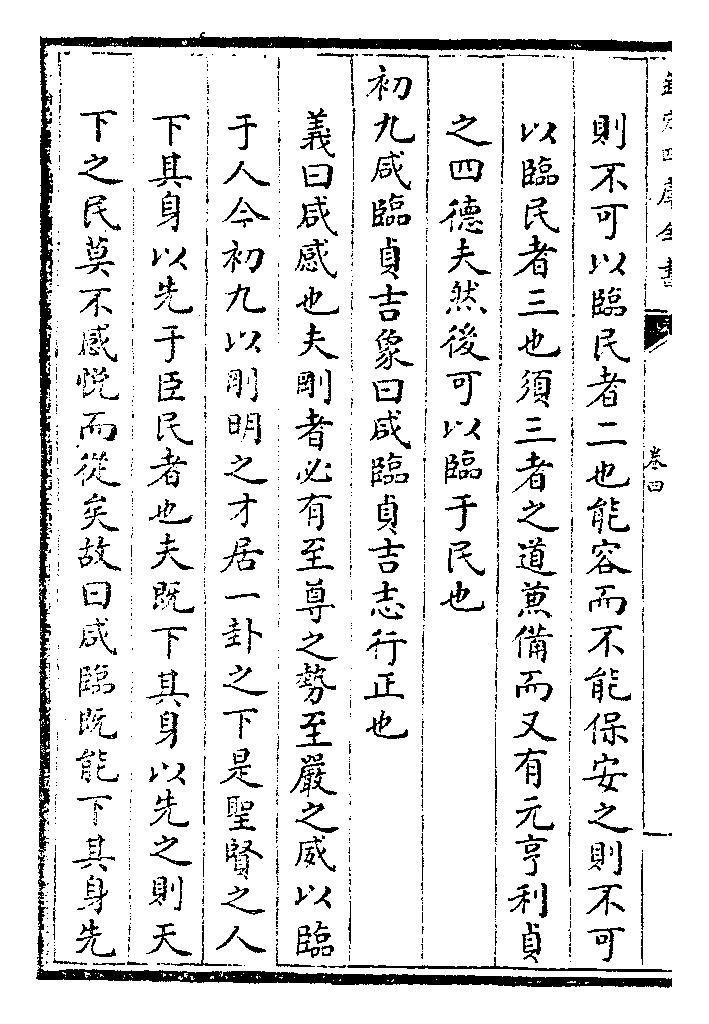 欽定四庫全書
卷四
則不可以臨民者二也能容而不能保安之則不可
以臨民者三也須三者之道兼備而又有元亨利貞
之四德夫然後可以臨于民也
初九咸臨貞吉象曰咸臨貞吉志行正也
義曰咸感也夫剛者必有至尊之勢至嚴之威以臨
于人今初九以剛明之才居一卦之下是聖賢之人
下其身以先于臣民者也夫既下其身以先之則天
下之民莫不感悅而從矣故曰咸臨既能下其身先